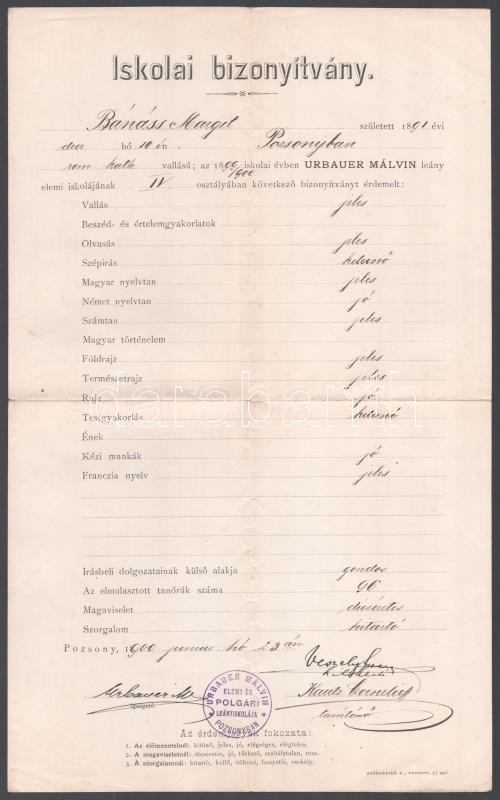 Iskolai bizonyítvány.
Bánáss Margit született 1891 évi
dec hó 10 én. Pozsonyban
rom. kath. vallású; az 1899/1900 iskolai évben URBAUER MÁLVIN leány
elemi iskolájának IV. osztályában következő bizonyítványt érdemelt:
Vallás jeles
Beszéd- és értelemgyakorlatok
Olvasás jeles
Szépírás kitünő
Magyar nyelvtan jeles
Német nyelvtan jó
Számtan jeles
Magyar történelem
Földrajz jeles
Természetrajz jeles
Rajz jó
Testgyakorlás kitünő
Ének
Kézi munkák jó
Franczia nyelv jeles
Irásbeli dolgozatainak külső alakja gondos
Az elmulasztott tanórák száma 96
Magaviselet dicséretes
Szorgalom kitartó
Pozsony, 1900 junius hó 23 án
Urbauer M.
igazgató.
URBAUER MÁLVIN
ELEMI ÉS
POLGÁRI
LEÁNYISKOLÁJA
POZSONYBAN
tanítónő
Az érdemjegyek fokozatai:
1. Az előmenetelnél: kitünő, jeles, jó, elégséges, elégtelen.
2. A magaviseletnél: dicséretes, jó, tűrhető, szabálytalan, rosz.
3. A szorgalomnál: kitartó, kellő, változó, hanyatló, csekély.
darabanth